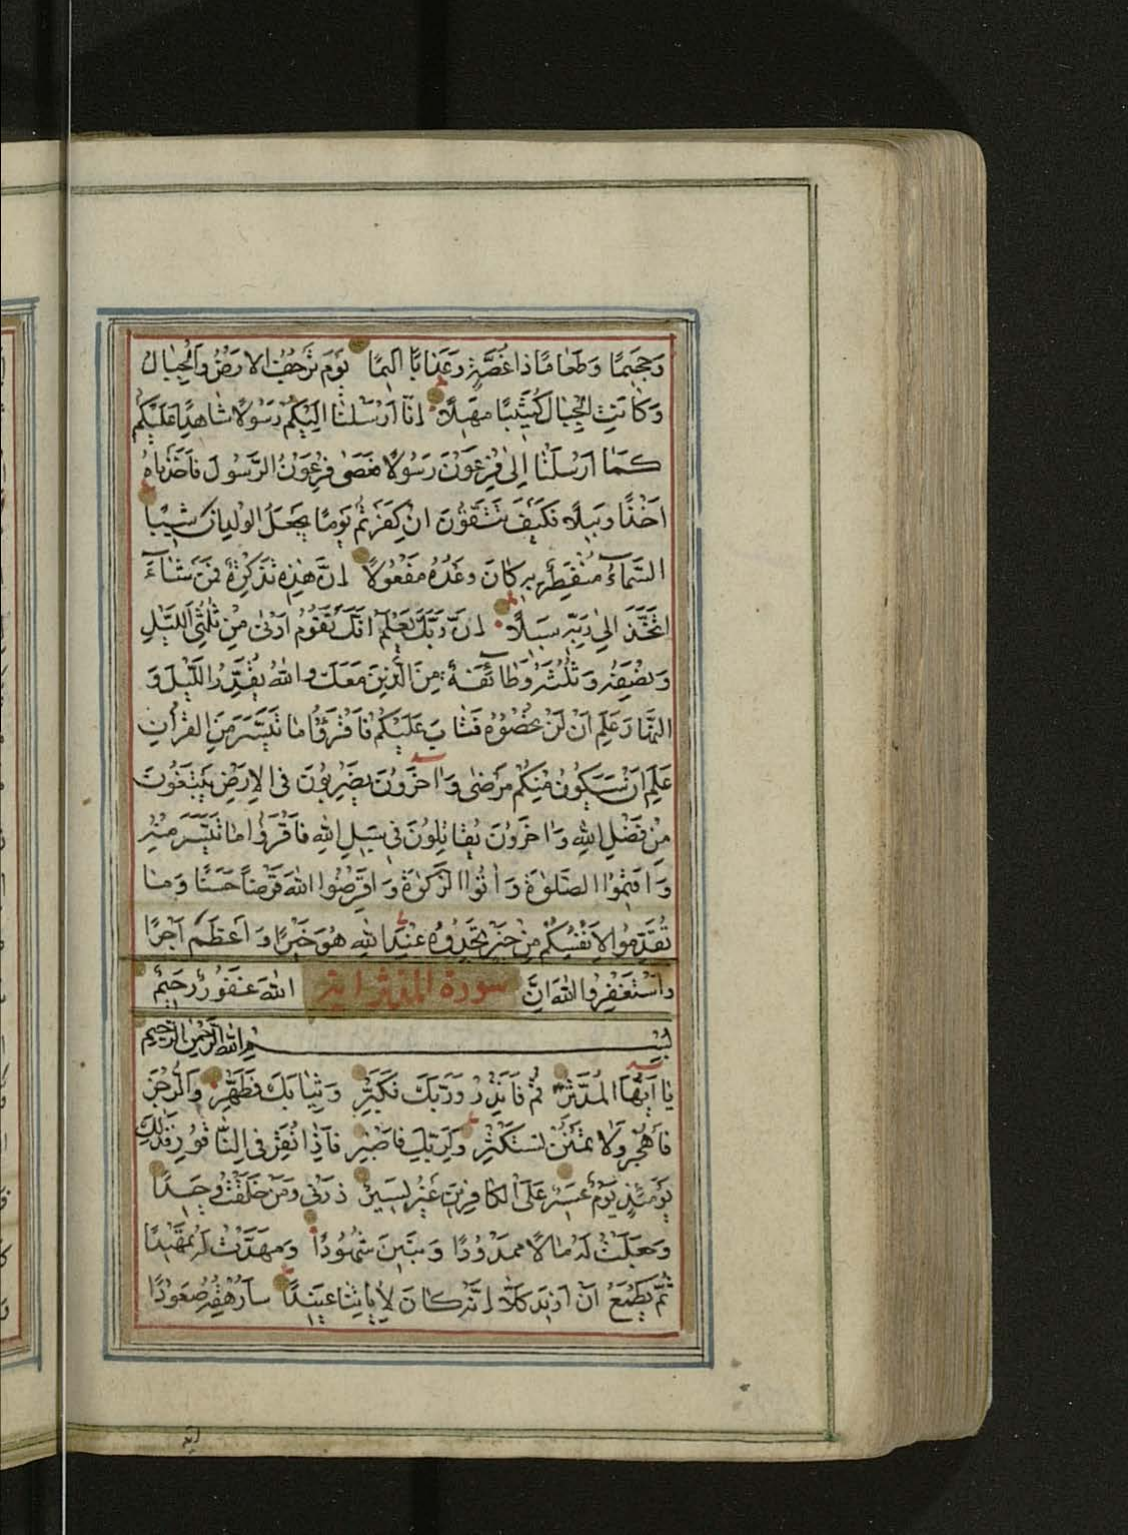 وَجَحِيمًا وَطَعَامًا ذَا غُصَّةٍ وَعَذَابًا اَلِيمًا يَوْمَ تَرْجُفُ الْاَرْضُ وَالْجِبَالُ
وَكَانَتِ الْجِبَالُ كَثِيبًا مَهِيلًا اِنَّا اَرْسَلْنَا اِلَيْكُمْ رَسُولًا شَاهِدًا عَلَيْكُمْ
كَمَا اَرْسَلْنَا اِلَى فِرْعَوْنَ رَسُولًا فَعَصَى فِرْعَوْنُ الرَّسُولَ فَاَخَذْنَاهُ
اَخْذًا وَبِيلًا فَكَيْفَ تَتَّقُونَ اِنْ كَفَرْتُمْ يَوْمًا يَجْعَلُ الْوِلْدَانَ شِيبًا
السَّمَآءُ مُنْفَطِرٌ بِهِ كَانَ وَعْدُهُ مَفْعُولًا اِنَّ هَذِهِ تَذْكِرَةٌ فَمَنْ شَآءَ
اتَّخَذَ اِلَى رَبِّهِ سَبِيلًا اِنَّ رَبَّكَ يَعْلَمُ اَنَّكَ تَقُومُ اَدْنَى مِنْ ثُلُثَيِ الَّيْلِ
وَنِصْفَهُ وَثُلُثَهُ وَطَائِفَةٌ مِنَ الَّذِينَ مَعَكَ وَاللّٰهُ يُقَدِّرُ الَّيْلَ وَ
النَّهَارَ عَلِمَ اَنْ لَنْ تُحْصُوهُ فَتَابَ عَلَيْكُمْ فَاقْرَؤُا مَا تَيَسَّرَ مِنَ الْقُرْاٰنِ
عَلِمَ اَنْ سَيَكُونُ مِنْكُمْ مَرْضَى وَاٰخَرُونَ يَضْرِبُونَ فِى الْاَرْضِ يَبْتَغُونَ
مِنْ فَضْلِ اللّٰهِ وَاٰخَرُونَ يُقَاتِلُونَ فِى سَبِيلِ اللّٰهِ فَاقْرَؤُا مَا تَيَسَّرَ مِنْهُ
وَاَقِيمُوا الصَّلٰوةَ وَاٰتُوا الزَّكٰوةَ وَاَقْرِضُوا اللّٰهَ قَرْضًا حَسَنًا وَمَا
تُقَدِّمُوا لِاَنْفُسِكُمْ مِنْ خَيْرٍ تَجِدُوهُ عِنْدَ اللّٰهِ هُوَ خَيْرًا وَاَعْظَمَ اَجْرًا
وَاسْتَغْفِرُوا اللّٰهَ اِنَّ سورة المدثر اللّٰهَ غَفُورٌ رَحِيمٌ
بِسْمِ اللّٰهِ الرَّحْمٰنِ الرَّحِيمِ
يَا اَيُّهَا الْمُدَّثِّرُ قُمْ فَاَنْذِرْ وَرَبَّكَ فَكَبِّرْ وَثِيَابَكَ فَطَهِّرْ وَالرُّجْزَ
فَاهْجُرْ وَلَا تَمْنُنْ تَسْتَكْثِرُ وَلِرَبِّكَ فَاصْبِرْ فَاِذَا نُقِرَ فِى النَّاقُورِ فَذٰلِكَ
يَوْمَئِذٍ يَوْمٌ عَسِيرٌ عَلَى الْكَافِرِينَ غَيْرُ يَسِيرٍ ذَرْنِى وَمَنْ خَلَقْتُ وَحِيدًا
وَجَعَلْتُ لَهُ مَالًا مَمْدُودًا وَبَنِينَ شُهُودًا وَمَهَّدْتُ لَهُ تَمْهِيدًا
ثُمَّ يَطْمَعُ اَنْ اَزِيدَ كَلَّا اِنَّهُ كَانَ لِاٰيَاتِنَا عَنِيدًا سَاُرْهِقُهُ صَعُودًا